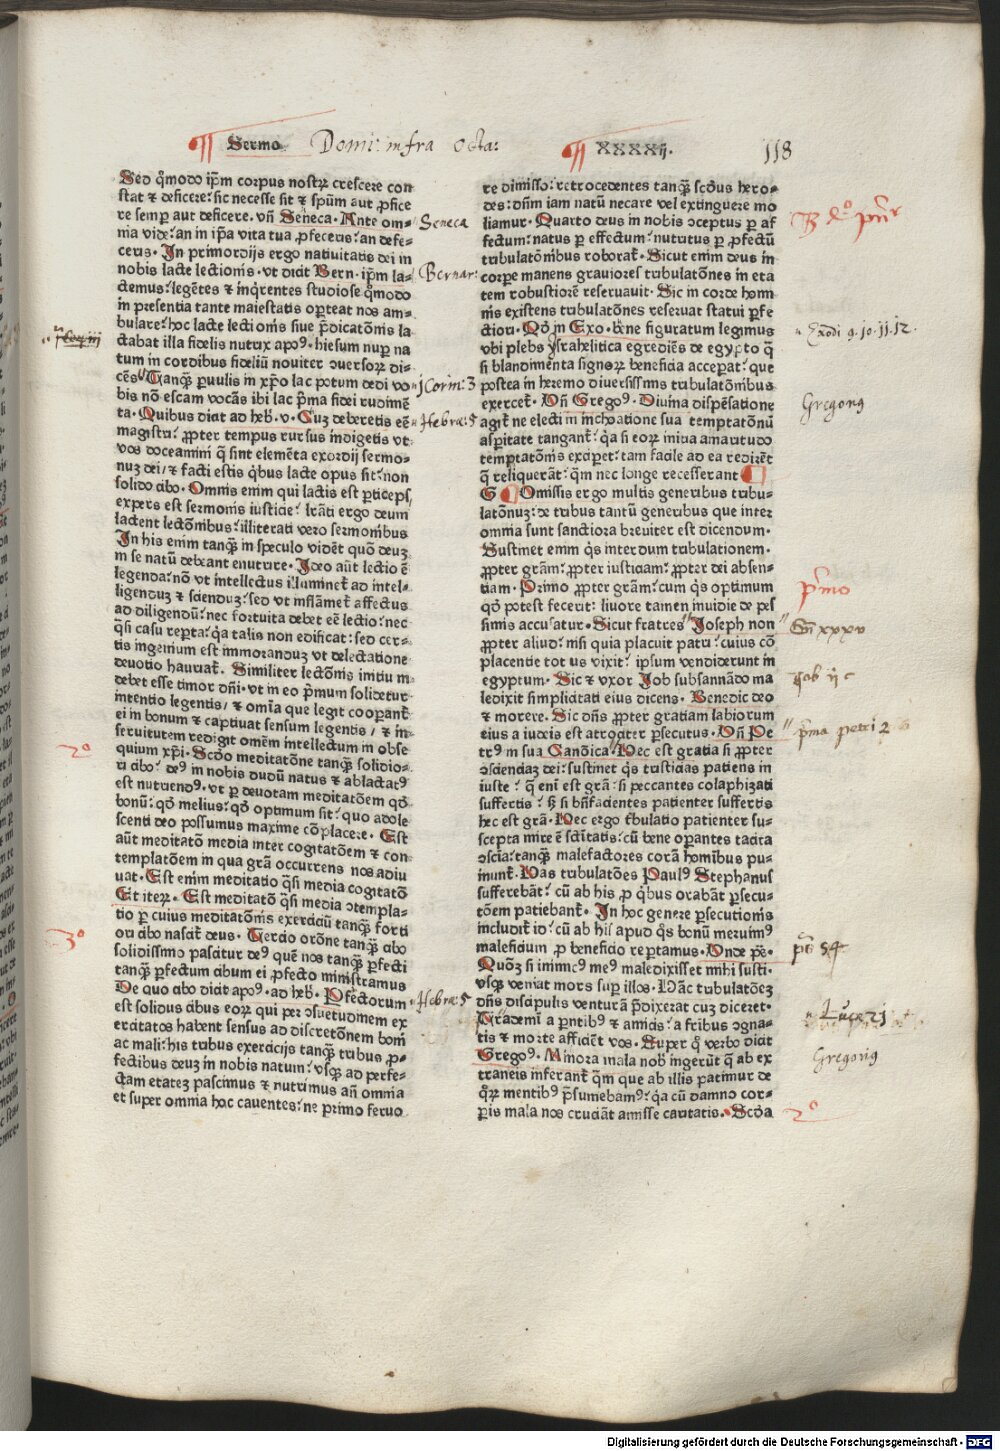 Sermo Domi: infra octa: XXXXij. 118
Sed qm̊odo ip̅m corpus nostrꝝ crescere con
stat ⁊ deficere: sic necesse sit ⁊ spūm aut ꝓfice
re semꝑ aut deficere. vn̄ Seneca. Ante om⸗
nia vide: an in ip̅a vita tua ꝓfeceris: an defe⸗
ceris. In primordijs ergo natiuitatis dei in
nobis lacte lectionis. vt dicit Bern. ip̅m la⸗
ctemus: legētes ⁊ inq̇rentes studiose qm̊odo
in presentia tante maiestatis oꝑteat nos am⸗
bulare: hoc lacte lectionis siue p̄dicatōnis la
ctabat illa fidelis nutrix apoꝰ. hiesum nuꝑ na
tum in cordibus fideliū nouiter ꝯuersoꝝ di⸗
cēs Tanqꝫ ꝑuulis in xp̄o lac potum dedi vo
bis nō escam vocās ibi lac p̄ma fidei rudimē
ta. Quibus dicit ad heb̄. v. Cuꝫ deberetis eē
magistri: ꝓpter tempus rursus indigetis vt
vos doceamini q̄ sint elemēta exordij sermo⸗
nuꝫ dei, ⁊ facti estis q̇bus lacte opus sit: non
solido cibo. Omnis enim qui lactis est ꝑticeps
expers est sermonis iusticie: lr̄ati ergo deum
lactent lectōnibus: illiterati vero sermonibus
In his enim tanqꝫ in speculo vidēt quō deuꝫ
in se natū debeant enutrire. Ideo aūt lectio ē
legenda: nō vt intellectus illuminet̄ ad intel⸗
ligenduꝫ ⁊ sciendуꝫ: sed vt inflāmet̄ affectus
ad diligendū: nec fortuita debet eē lectio: nec
q̇si casu reꝑta: q̇a talis non edificat: sed cer⸗
tis ingenium est immoranduꝫ vt delectatione
deuotio hauriat̄. Similiter lectōnis initiū in⸗
debet esse timor dn̄i. vt in eo p̄mum solidetur
intentio legentis, ⁊ om̄ia que legit cooperant̄
ei in bonum ⁊ captiuat sensum legentis, ⁊ in⸗
seruitutem redigit omēm intellectum in obse
quium xp̄i. Scďo meditatōne tanqꝫ solidio⸗
ri cibo: deꝰ in nobis dudū natus ⁊ ablactatꝰ
est nutriendꝰ. vt ꝑ deuotam meditatōem qď
bonū: qď melius: qď optimum sit: quo adole
scenti deo possumus maxime cōplacere. Est
aūt meditatō media inter cogitatōem ⁊ con⸗
templatōem in qua grā occurrens nos adiu
uat. Est enim meditatio q̇si media cogitatō
Et iteꝝ. Est meditatō q̇si media ꝯtempla⸗
tio ꝑ cuius meditatōnis exerciciū tanqꝫ forti
ori cibo nascit̄ deus. Tercio orōne tanqꝫ cibo
solidissimo pascitur deꝰ quē nos tanqꝫ ꝑfecti
tanqꝫ ꝑfectum cibum ei ꝓfecto ministramus
De quo cibo dicit apoꝰ. ad heb̄. Pfectorum
est solidus cibus eoꝝ qui per ꝯsuetudinem ex
ercitatos habent sensus ad discretōnem boni
ac mali: his tribus exercicijs tanqꝫ tribus ꝓ⸗
fectibus deuꝫ in nobis natum: vsqꝫ ad perfe⸗
ctam etateꝫ pascimus ⁊ nutrimus an̄ omnia
et super omnia hoc cauentes: ne primo feruo
re dimisso: retrocedentes tanqꝫ scďus hero⸗
des: dn̄m iam natū necare vel extinguere mo
liamur. Quarto deus in nobis ꝯceptus ꝑ af
fectum: natus ꝑ effectum: nutritus ꝑ ꝓfectū
tribulatōnibus roborat̄. Sicut enim deus in
corpe manens grauiores tribulatōnes in eta
tem robustiorē reseruauit. Sic in corde homi
nis existens tribulatōnes reseruat statui ꝑfe
ctiori. Qď in Exo. bene figuratum legimus
vbi plebs ysrahelitica egrediēs de egypto q̄
si blandimenta signoꝝ beneficia acceperat: que
postea in heremo diuersissimis tribulatōnibus
exercet̄. Vn̄ Gregoꝰ. Diuina dispēsatione
agit̄ ne electi in inchoatione sua temptatōnū
asperitate tangant̄: q̇a si eoꝝ initia amaritudo
temptatōnis exciperet: tam facile ad ea redirēt
q̄ reliquerāt: q̇m nec longe recesserant
G Omissis ergo multis generibus tribu⸗
latōnuꝫ: de tribus tantū generibus que inter
omnia sunt sanctiora breuiter est dicendum.
Sustinet enim q̇s interdum tribulationem.
ꝓpter grām: ꝓpter iusticiam: ꝓpter dei absen⸗
tiam. Primo ꝓpter grām: cum q̇s optimum
qď potest fecerit: liuore tamen inuidie de pes
simis accusatur. Sicut fratres Joseph non
ꝓpter aliud: nisi quia placuit patri: cuius cō
placentie totus vixit: ipsum vendiderunt in
egyptum. Sic ⁊ vxor Job subsannādo ma
ledixit simplicitati eius dicens. Benedic deo
⁊ morere. Sic dn̄s ꝓpter gratiam labiorum
eius a iudeis est atrociter ꝑsecutus. Vn̄ Pe
trꝰ in sua Canōica Hec est gratia si ꝓpter
ꝯscienciaꝫ dei: sustinet q̇s tristicias patiens in
iuste: q̄ enī est grā: si peccantes colaphizati
suffertis: sꝫ si bn̄facientes patienter suffertis
hec est grā. Hec ergo tribulatio patienter su⸗
scepta mire ē scītatis: cū bene oꝑantes tacita
ꝯscia: tanqꝫ malefactores corā hominibus pu⸗
niunt̄. Has tribulatōes Paulꝰ Stephanus
sufferebāt: cū ab his, ꝓ q̇bus orabāt ꝑsecu⸗
tōem patiebant̄. In hoc genere ꝑsecutionis
includit̄ id: cū ab his apud q̇s bonū meruimꝰ
maleficium ꝓ beneficio reꝑtamus. Vnde p̄e.
Quōꝫ si inimicꝰ meꝰ maledixisset mihi susti.
vsqꝫ veniat mors suꝑ illos. Hāc tribulatōeꝫ
dn̄s discipulis venturā p̄dixerat cuꝫ diceret.
Trademī a pn̄tibꝰ ⁊ amicis: a fribus ꝯgna⸗
tis ⁊ morte afficiēt vos. Super q̊ verbo dicit
Gregoꝰ. Minora mala nob̄ ingerūt q̄ ab ex
traneis inferant̄ q̇m que ab illis patimur de
q̇ꝝ mentibꝰ p̄sumebamꝰ: q̇a cū damno cor⸗
ꝑis mala nos cruciāt amisse caritatis. Scďa
Seneca
Bernar:
j Corin: 3
Hebrae: 5
2º
3º
Hebrae: 5
Exodi 9. 10. 11. 12.
Gregoriꝰ
p̄mo
Gn̄ xxxv
Job ij c
p̄ma petri 2
ps 54
Luce 21
Gregoriꝰ
2º